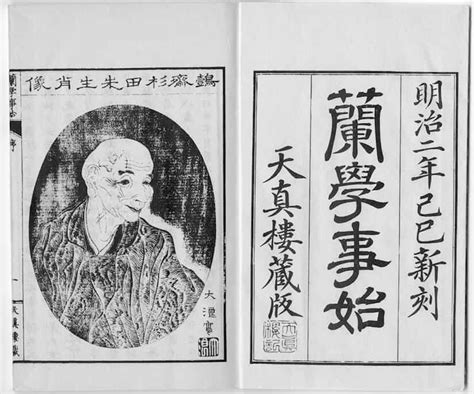 明治二年己巳新刻
蘭學事始
天真樓藏版
鷧齋杉田先生肖像
大浪寫
蘭學事始
序
一
天真樓藏